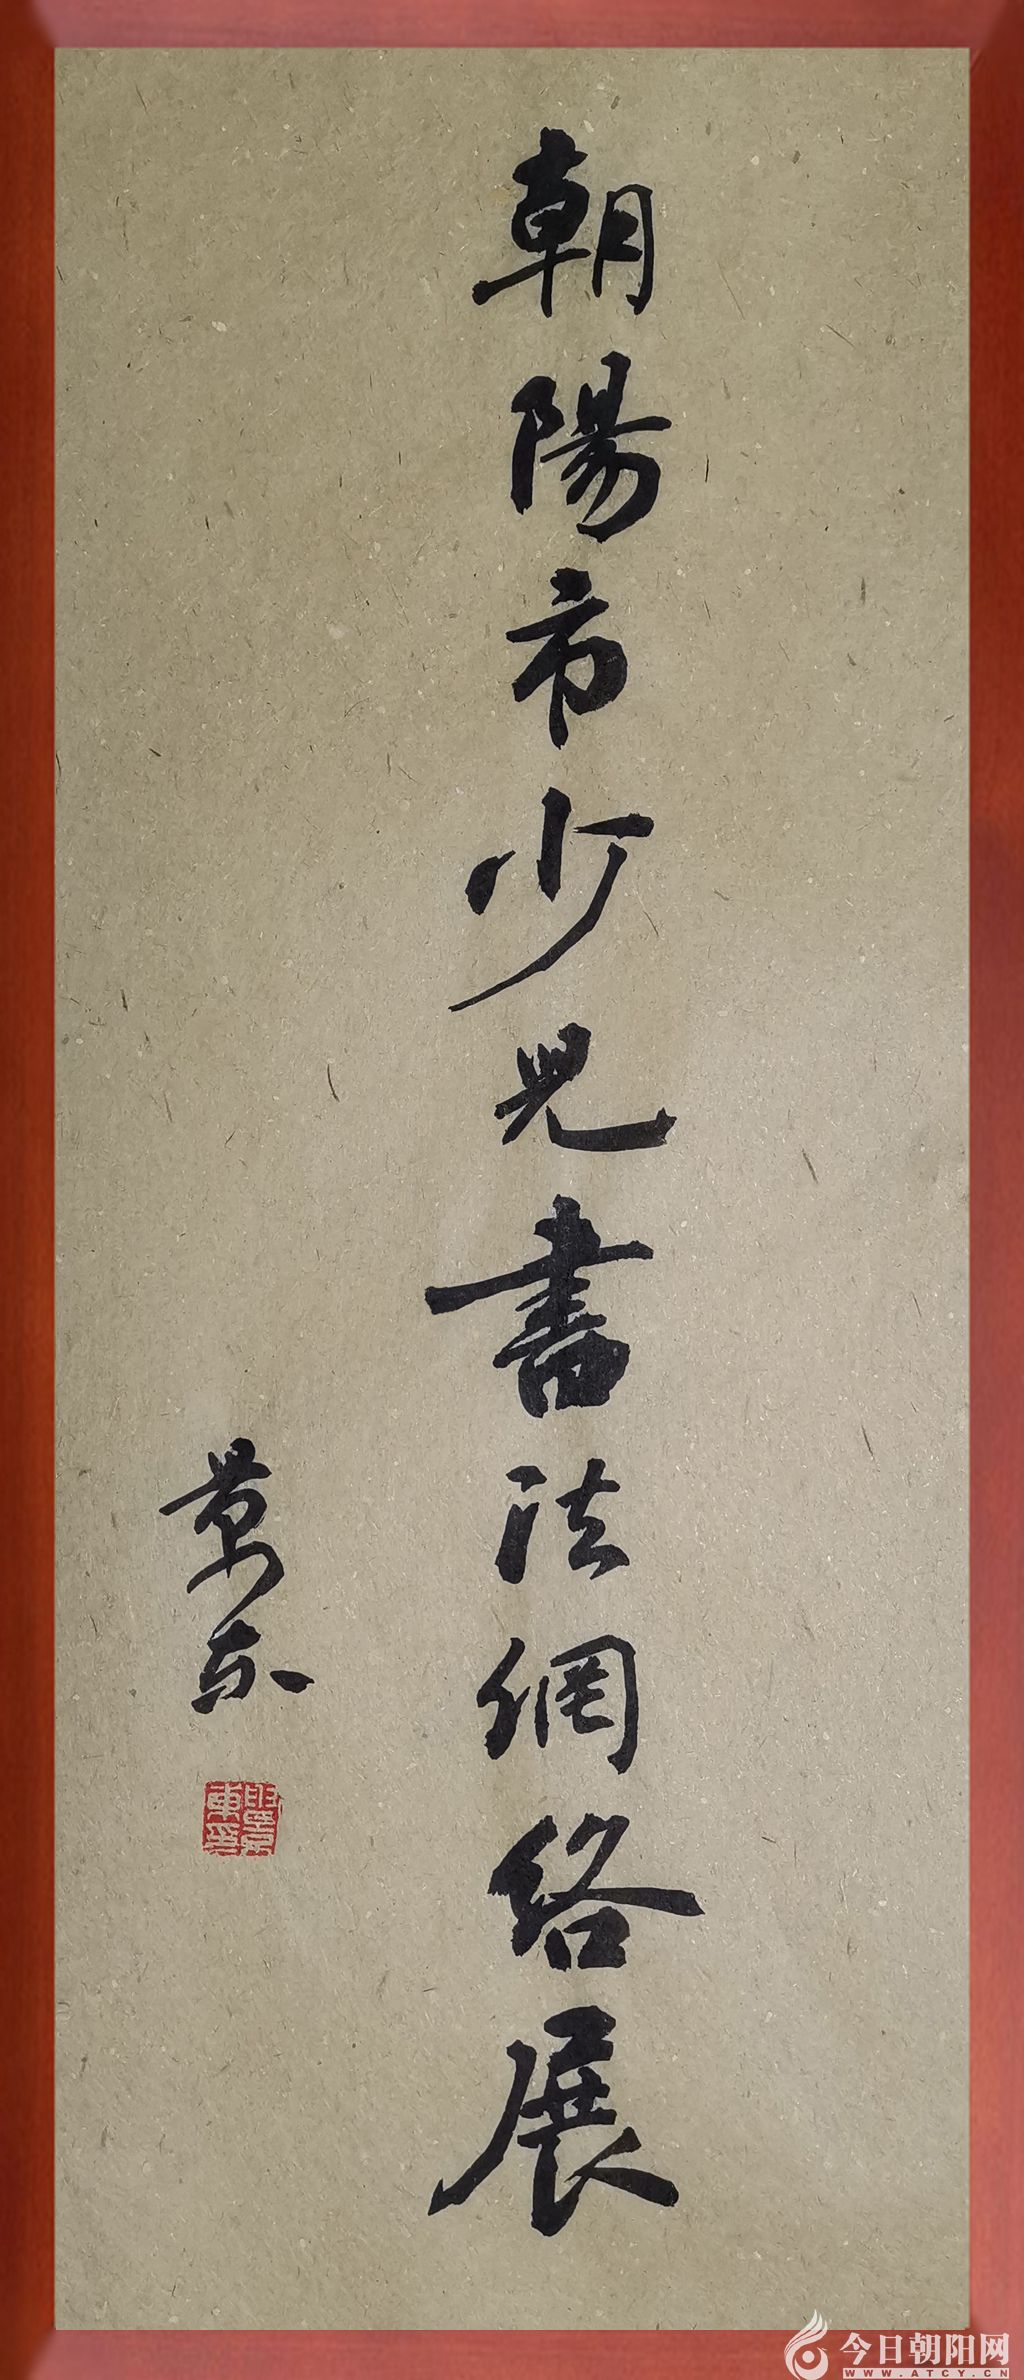 朝陽市少兒書法網絡展
景东
今日朝阳网
WWW.ATCY.CN